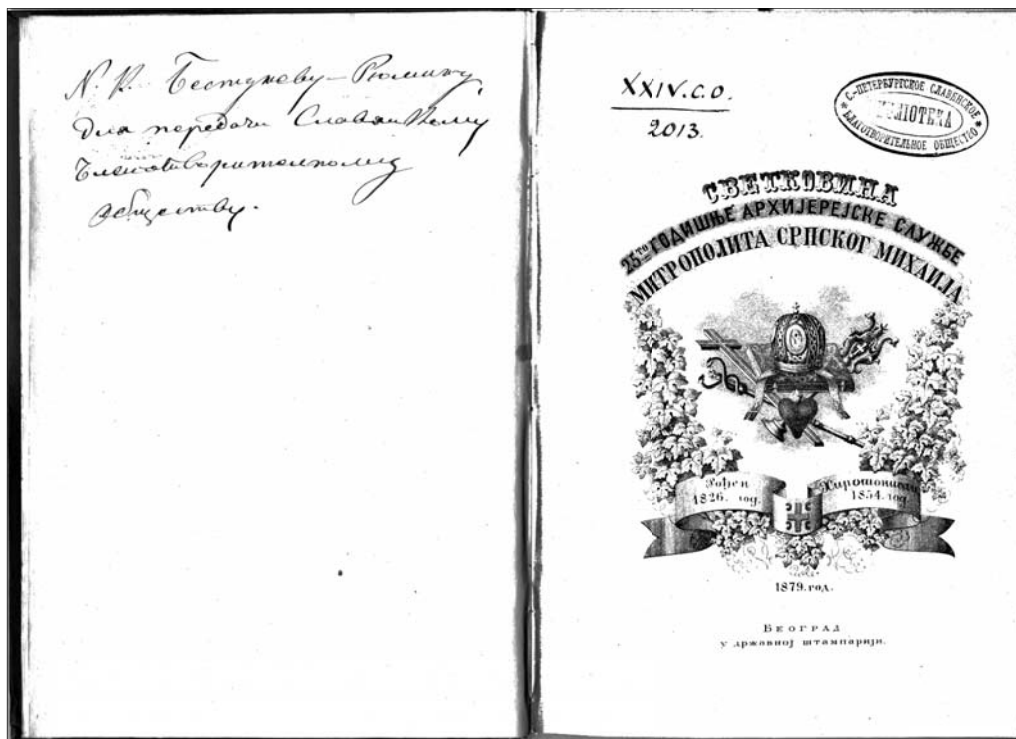 К. Н. Бестужеву-Рюмину
для передачи Славянскому
благотворительному
обществу.
XXIV.C.O.
2013.
С.-ПЕТЕРБУРГСКОЕ СЛАВЕНСКОЕ
БИБЛІОТЕКА
БЛАГОТВОРИТЕЛЬНОЕ ОБЩЕСТВО
СВЕТКОВИНА
25ТО ГОДИШЊЕ АРХИЈЕРЕЈСКЕ СЛУЖБЕ
МИТРОПОЛИТА СРПСКОГ МИХАИЈА
Рођен
1826. год.
Хиротонисан
1854. год.
1879. год.
БЕОГРАД
У ДРЖАВНОЈ ШТАМПАРИЈИ.